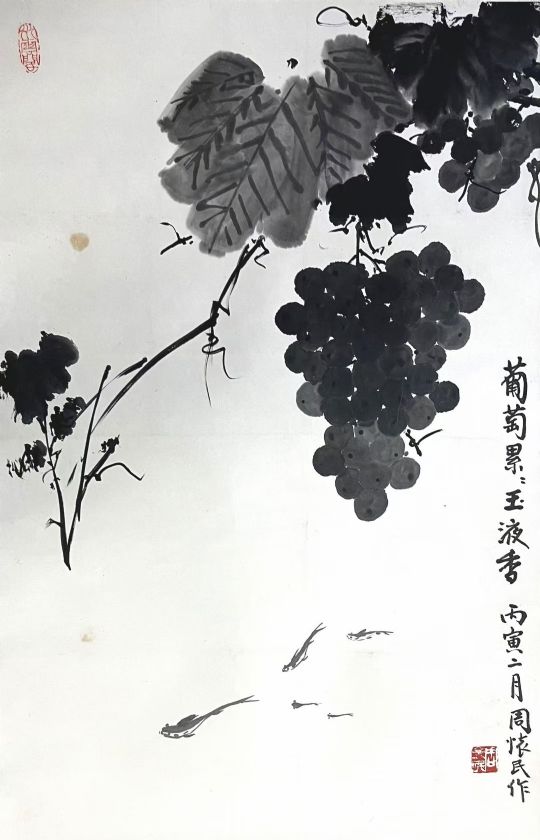 葡萄累〻玉液香 丙寅二月周怀民作